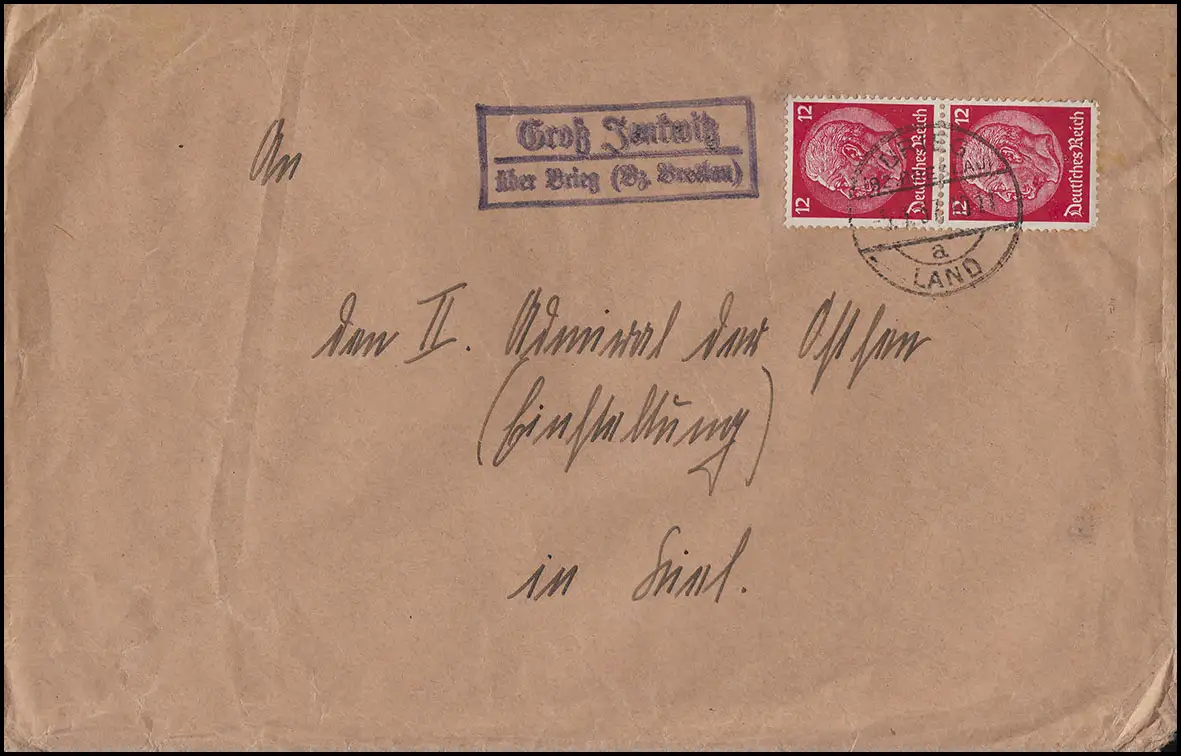 An
Groß Jenkwitz
über Brieg (Bz. Breslau)
12
12
Deutsches Reich
12
12
Deutsches Reich
a
LAND
den II. Admiral der Ostsee
(Einstellung)
in Kiel.